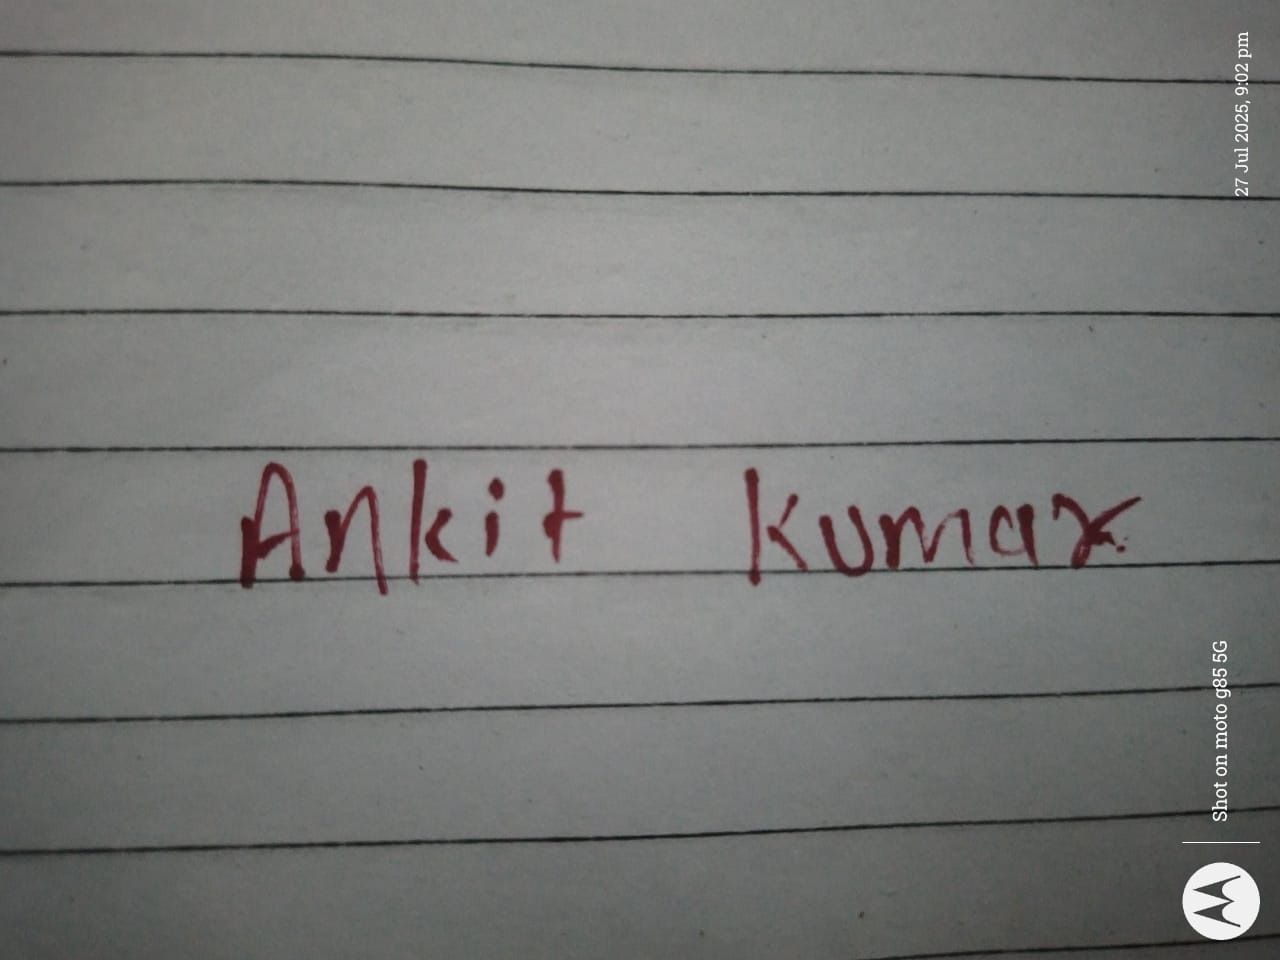 Ankit Kumar
27 Jul 2025, 9:02 pm
Shot on moto g85 5G